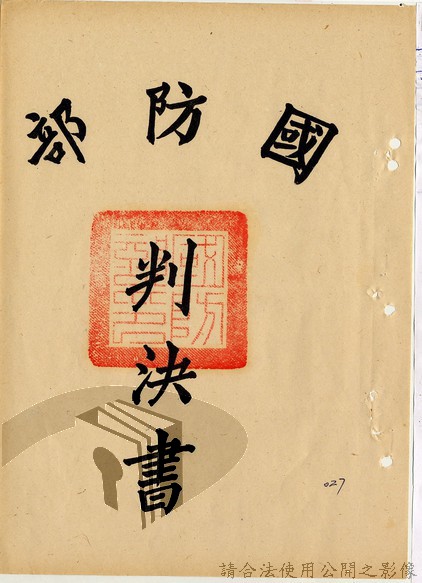 國防部
判決書
027
請合法使用公開之影像